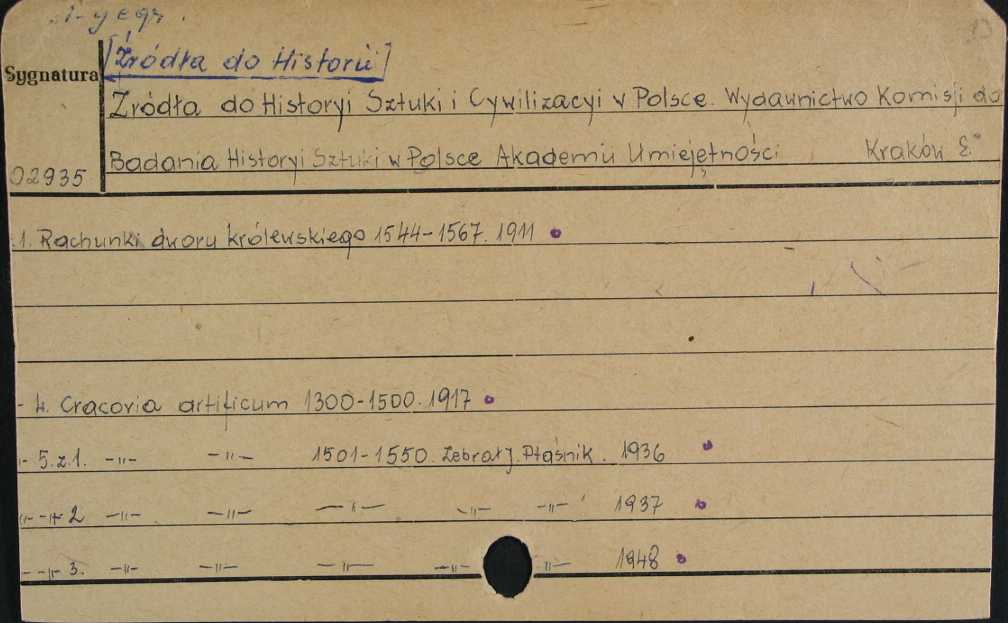 [Źródła do Historii]
Sygnatura
Źródła do Historyi Sztuki i Cywilizacyi w Polsce. Wydawnictwo Komisji do
Badania Historyi Sztuki w Polsce Akademii Umiejętności Kraków
02935
1. Rachunki dworu królewskiego 1544-1567. 1911
- 4. Cracovia artificum 1300-1500. 1917
- 5.z.1. -"- -"- 1501-1550. Zebrał J. Ptaśnik. 1936
-"- 2 -"- -"- -"- -"- -"- 1937
-"- 3. -"- -"- -"- -"- -"- 1948